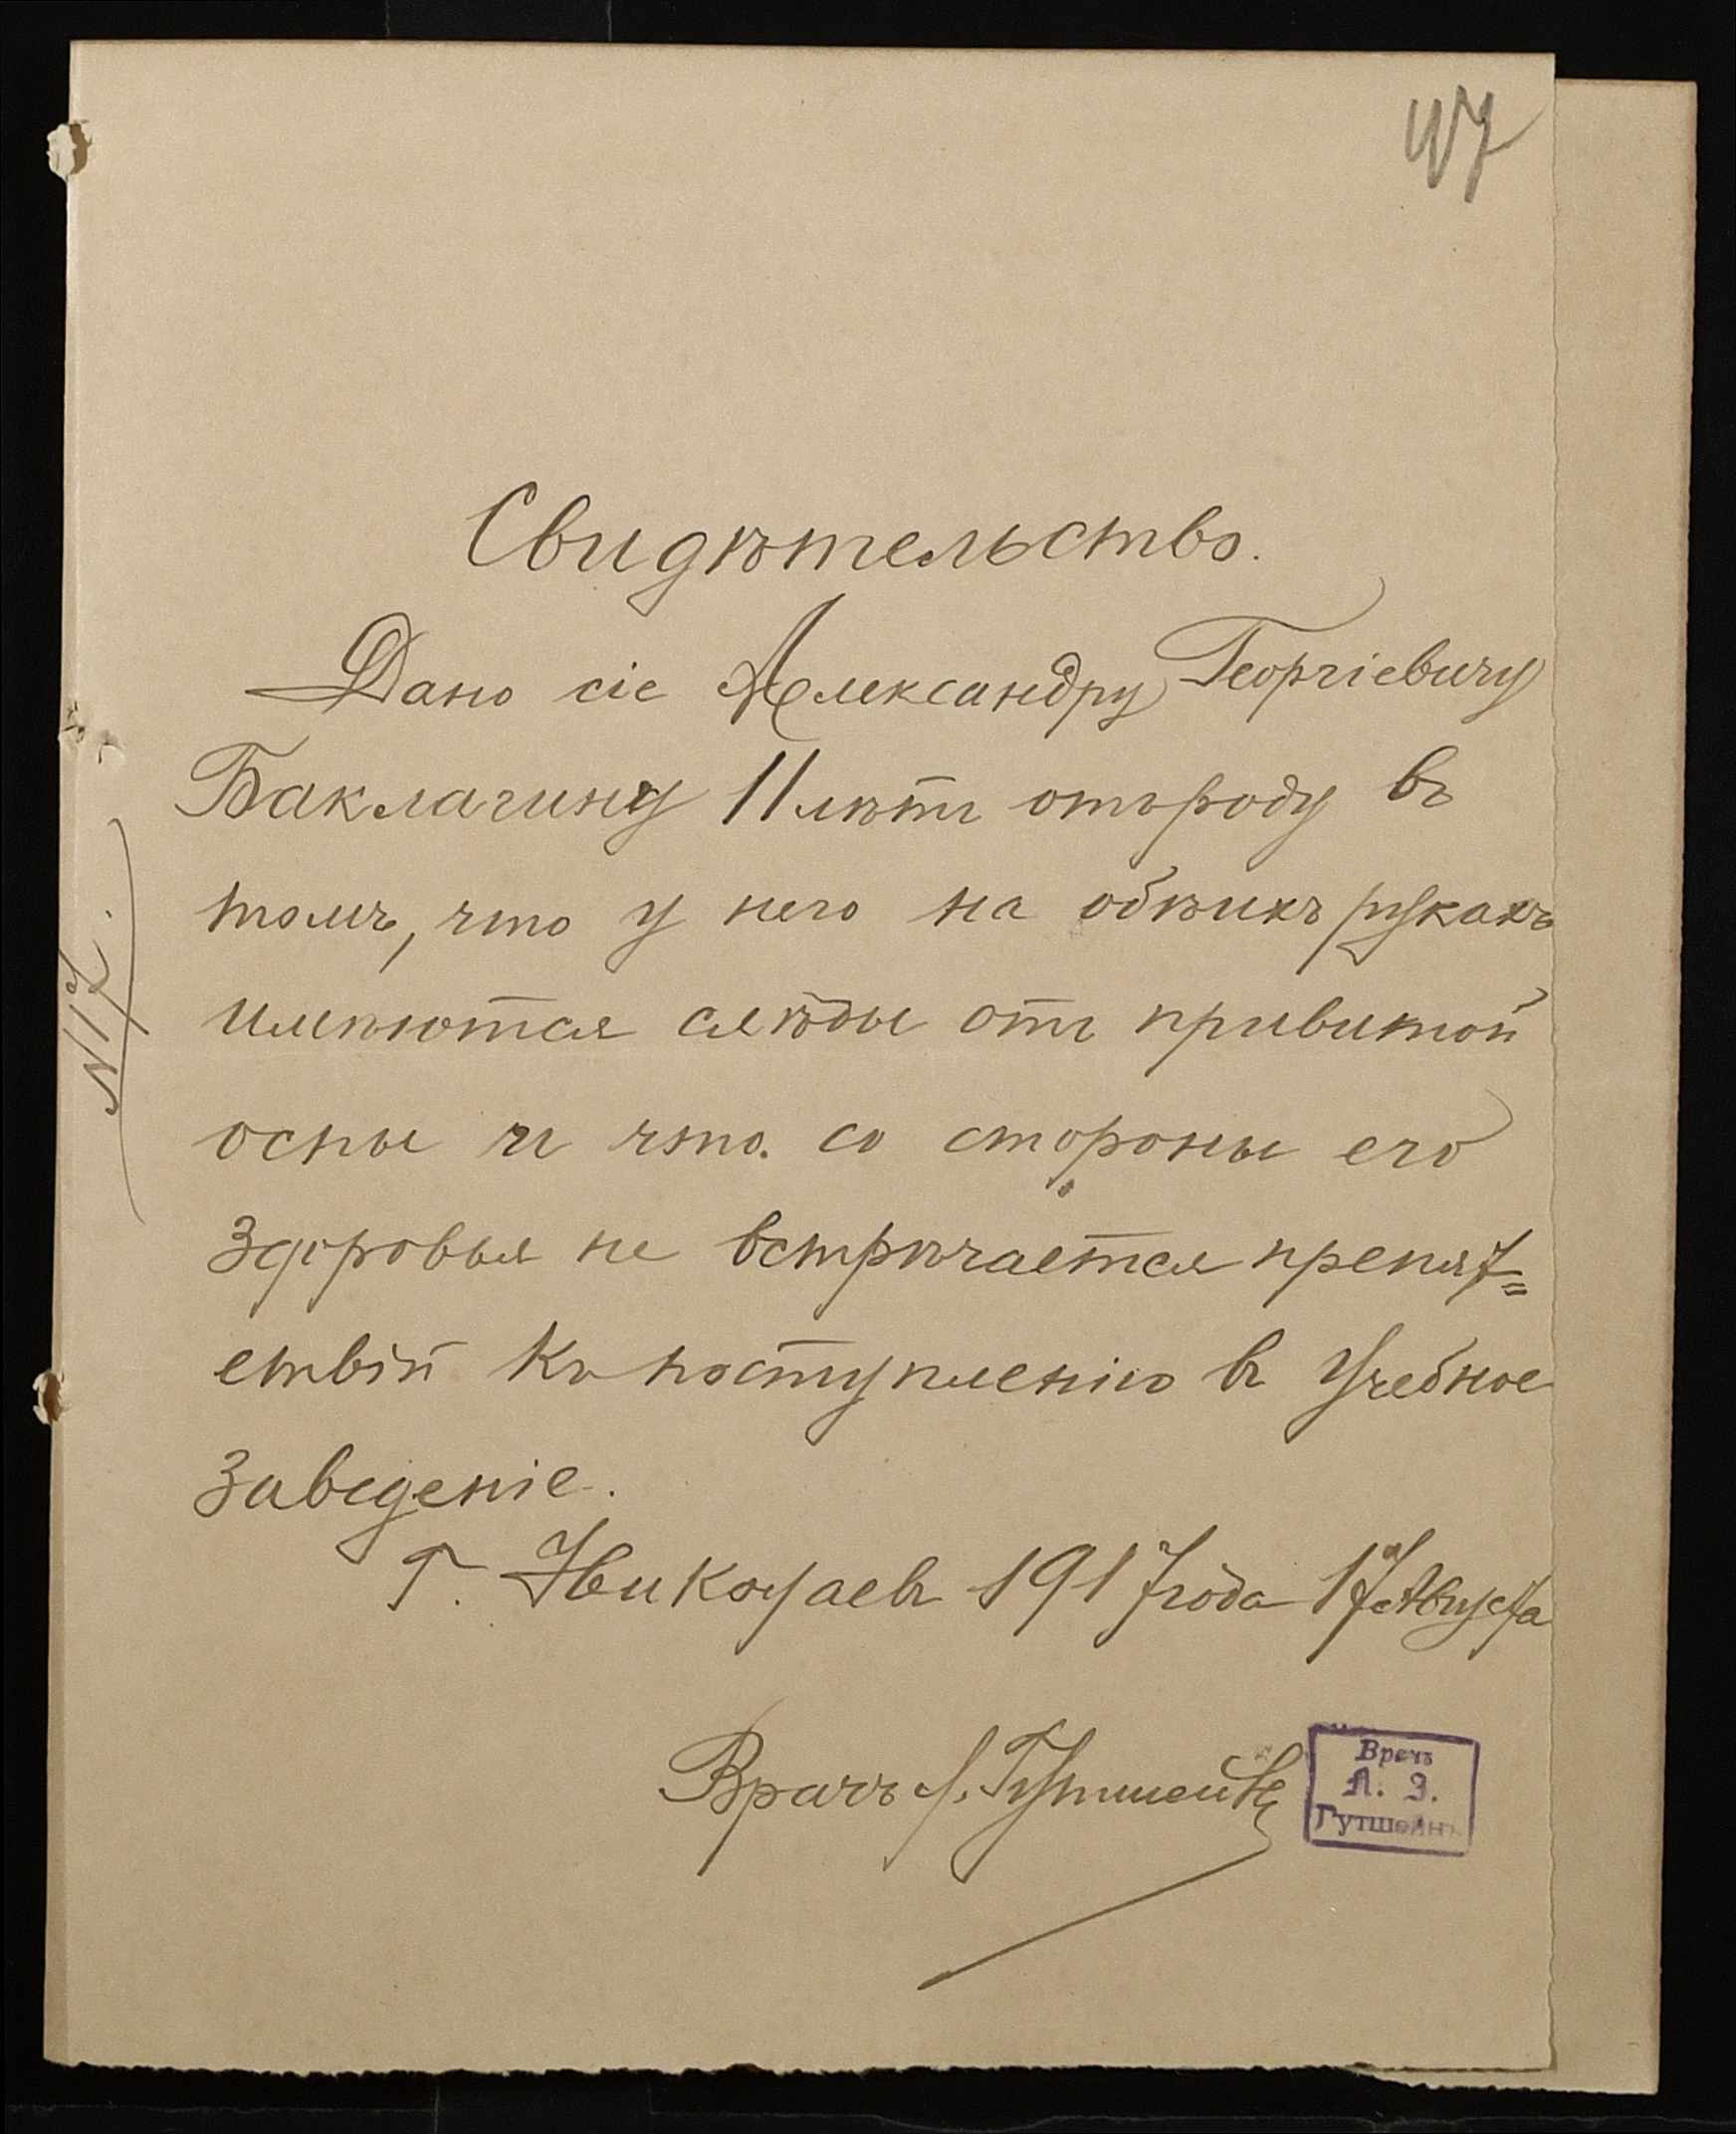 47
Свидѣтельство.
Дано сіе Александру Георгіевичу
Баклагину 11 лѣтъ отъ роду въ
томъ, что у него на обѣихъ рукахъ
имѣются слѣды отъ привитой
оспы и что со стороны его
здоровья не встрѣчается препят=
ствій къ поступленію въ учебное
заведеніе.
Г. Николаевъ 1917 года 17 Августа
Врачъ Л. Гутшейнъ
Врачъ
Л. Э.
Гутшейнъ
N 17.